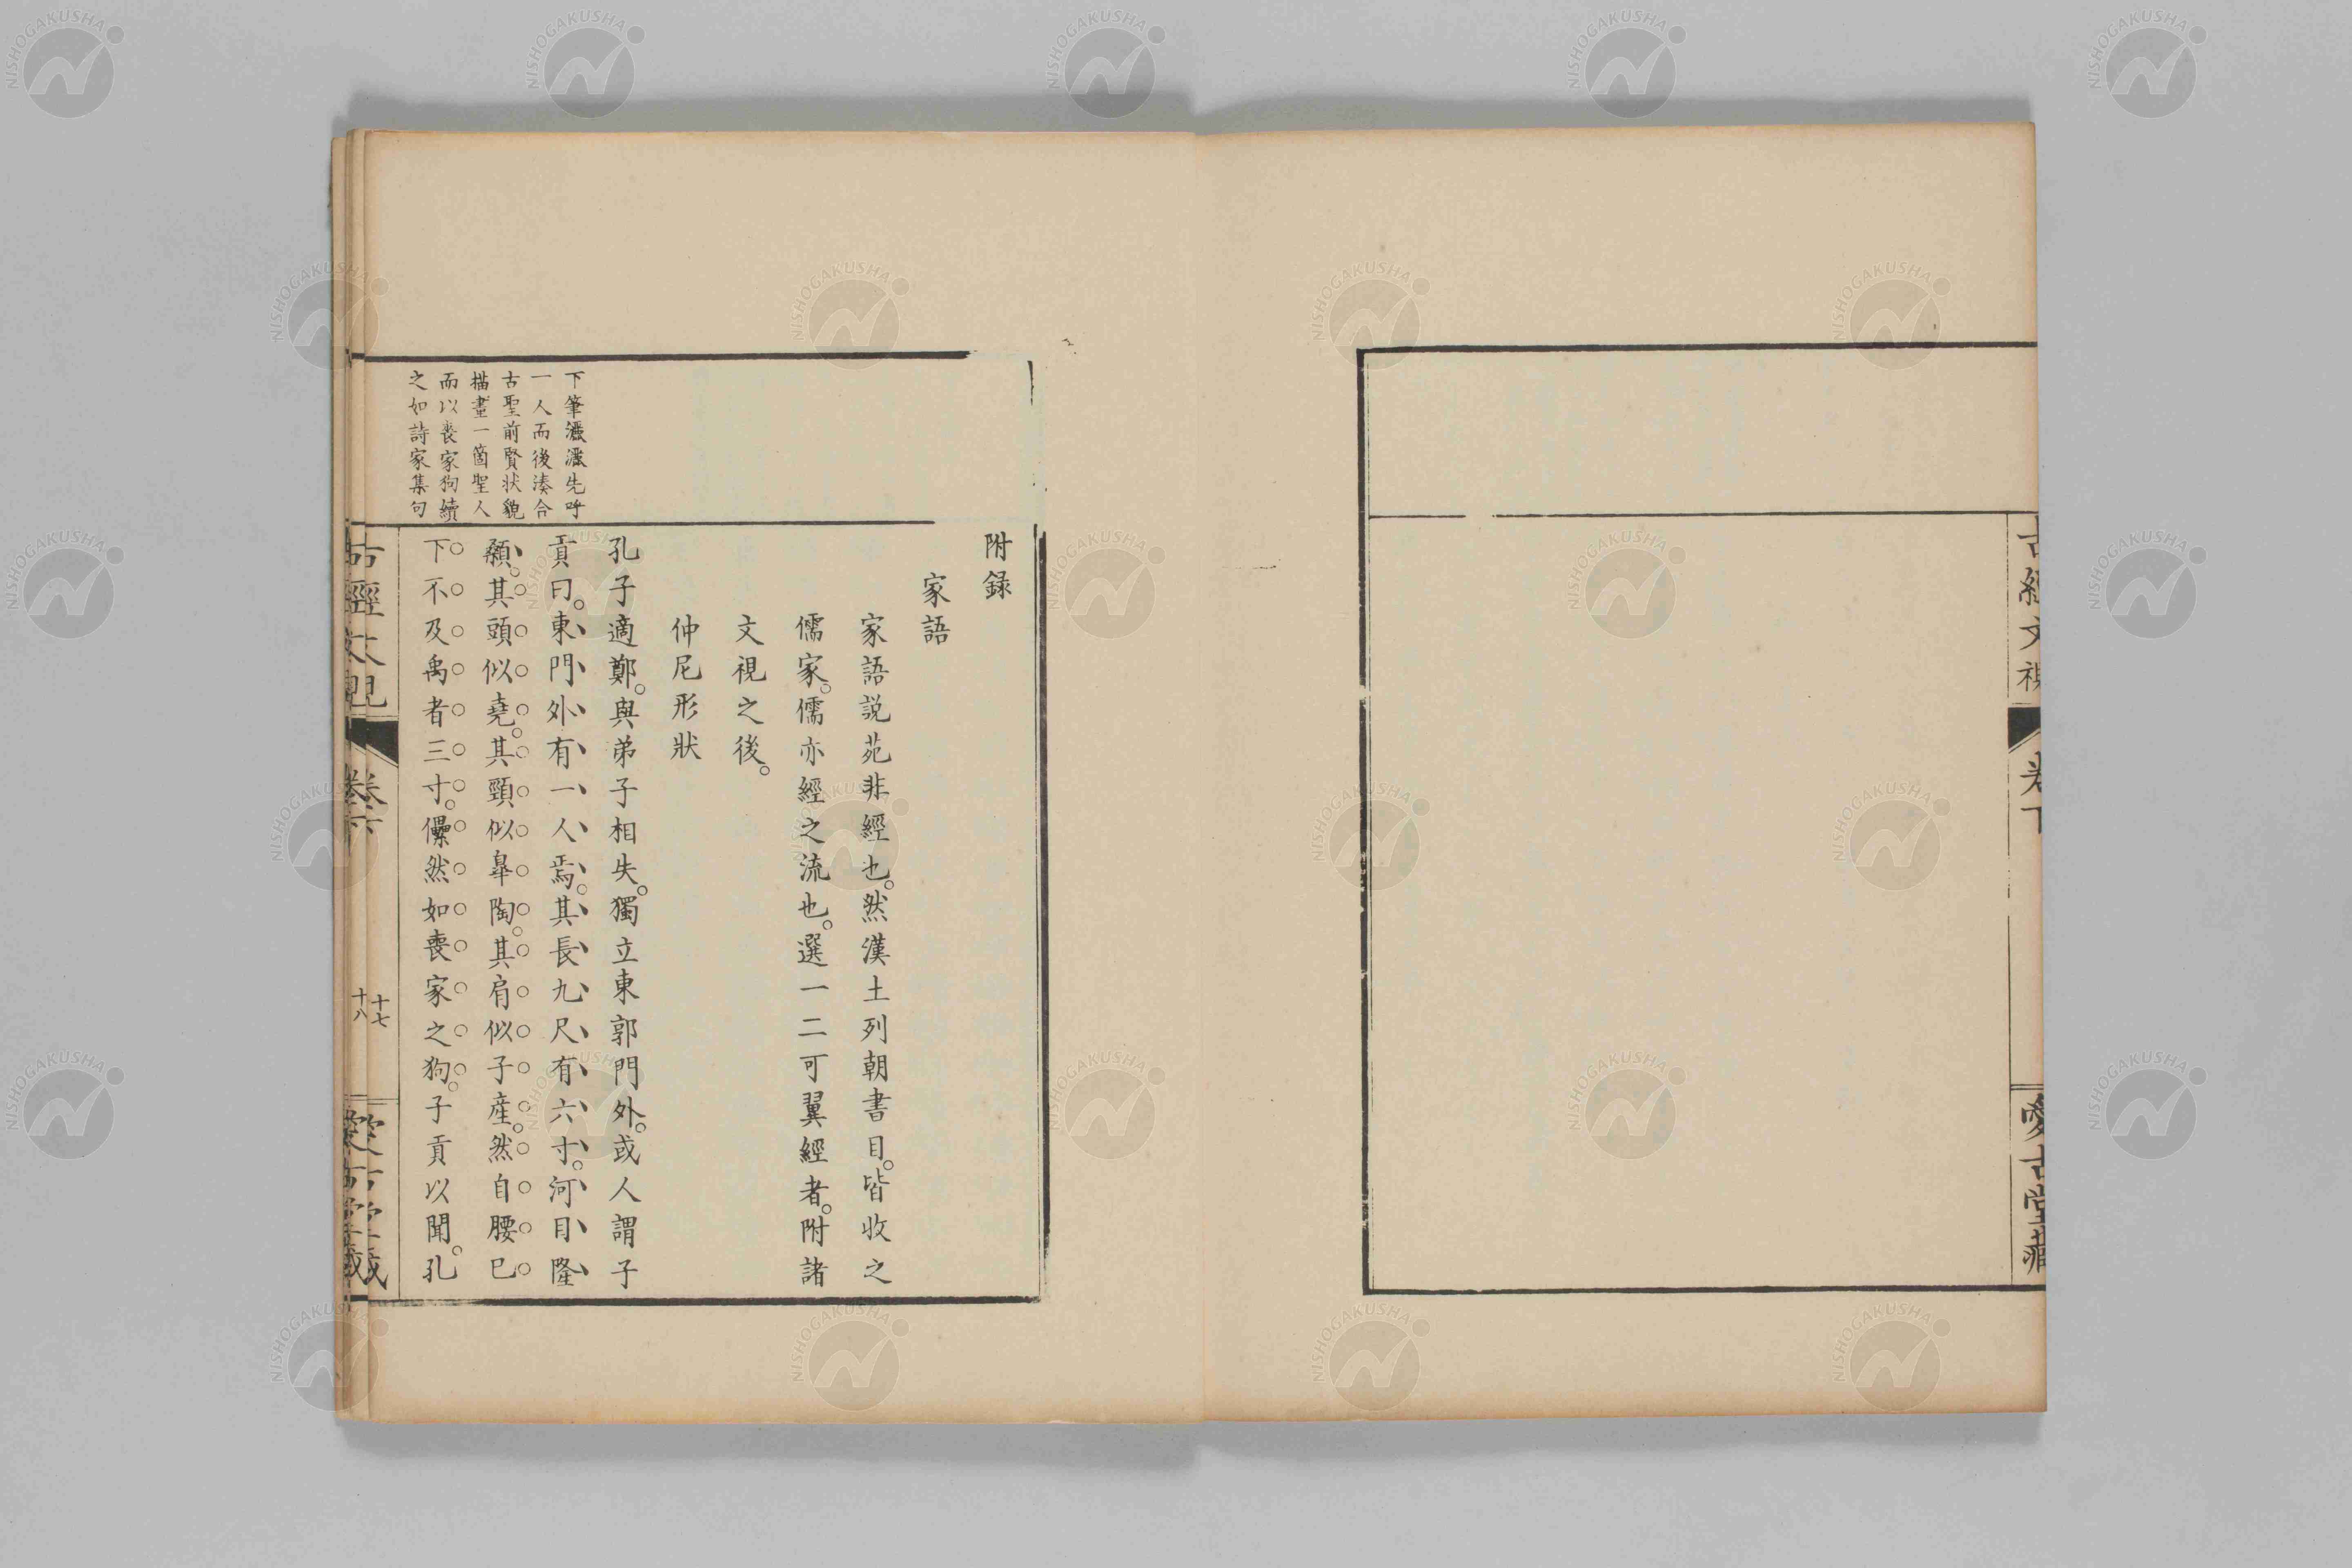 古經文視
卷下
愛古堂藏
附錄
家語
家語説苑非經也。然漢土列朝書目。皆收之
儒家。儒亦經之流也。選一二可翼經者。附諸
文視之後。
仲尼形狀
孔子適鄭。與弟子相失。獨立東郭門外。或人謂子
貢曰。東門外有一人焉。其長九尺有六寸。河目隆
顙。其頭似堯。其頸似皐陶。其肩似子産。然自腰已
下不及禹者三寸。儽然如喪家之狗。子貢以聞。孔
下筆濕濕先呼
一人而後湊合
古聖前賢状貌
描畫一箇聖人
而以喪家狗續
之如詩家集句
古經文視
卷下
十七
愛古堂藏
十八
NISHOGAKUSHA